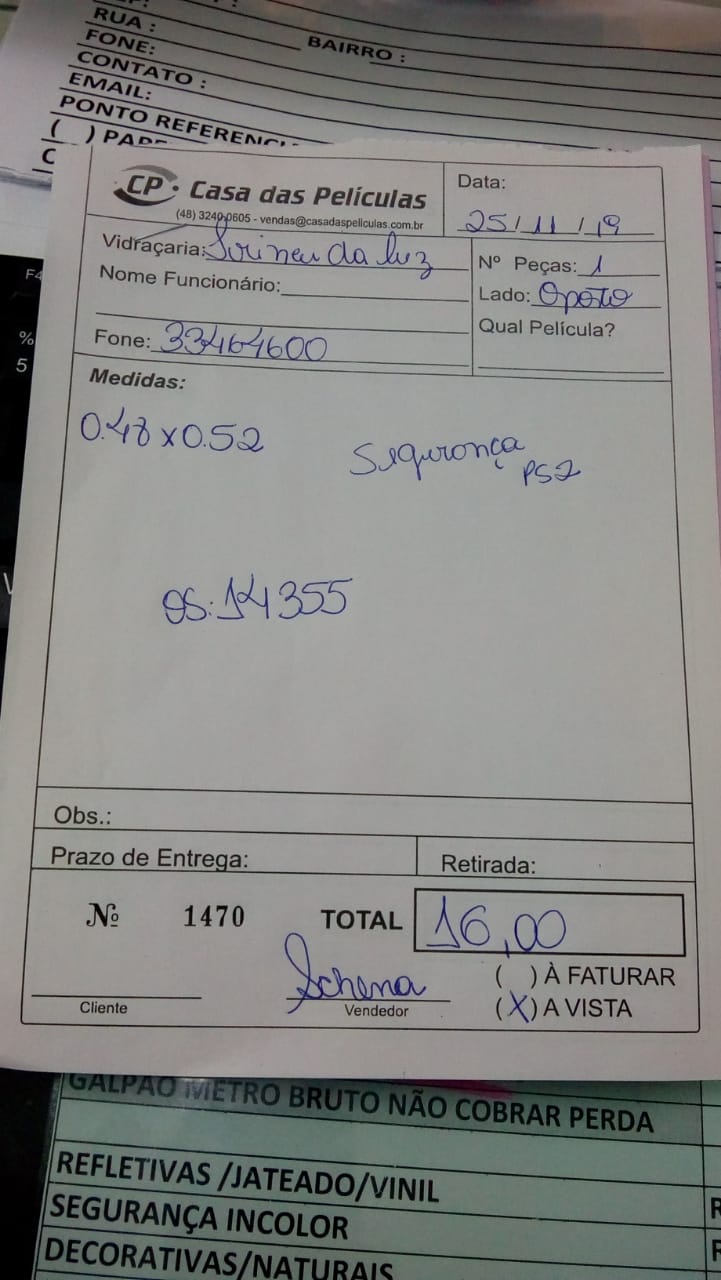 RUA :
BAIRRO :
FONE:
CONTATO :
EMAIL:
PONTO REFERENCI
( ) PAR
C
CP. Casa das Películas
(48) 3240-0605 - vendas@casadaspeliculas.com.br
Data:
25/11/19
Vidraçaria: Sirineu da luz
Nº Peças: 1
Nome Funcionário:
Lado: Oposto
Qual Película?
Fone: 33464600
Medidas:
0.48 x 0.52
Segurança
PS2
OS: 14355
Obs.:
Prazo de Entrega:
Retirada:
Nº 1470 TOTAL 16,00
Schena
( ) À FATURAR
Cliente
Vendedor
(X) A VISTA
GALPÃO METRO BRUTO NÃO COBRAR PERDA
REFLETIVAS /JATEADO/VINIL
SEGURANÇA INCOLOR
DECORATIVAS/NATURAIS
F4
%
5